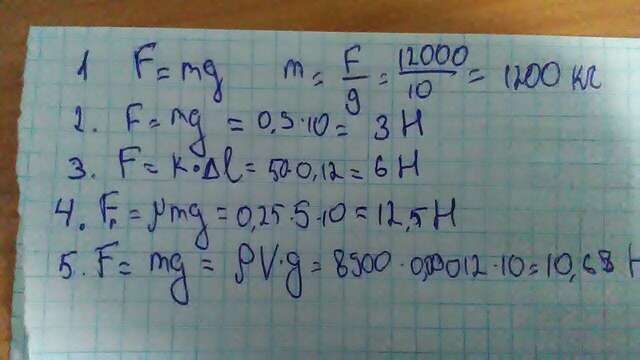 1 F = mg m = F/g = 12000/10 = 1200 кг
2. F = mg = 0,3·10 = 3 Н
3. F = k·Δl = 50·0,12 = 6 Н
4. Fт = μmg = 0,25·5·10 = 12,5 Н
5. F = mg = ρV·g = 8900·0,00012·10 = 10,68 Н